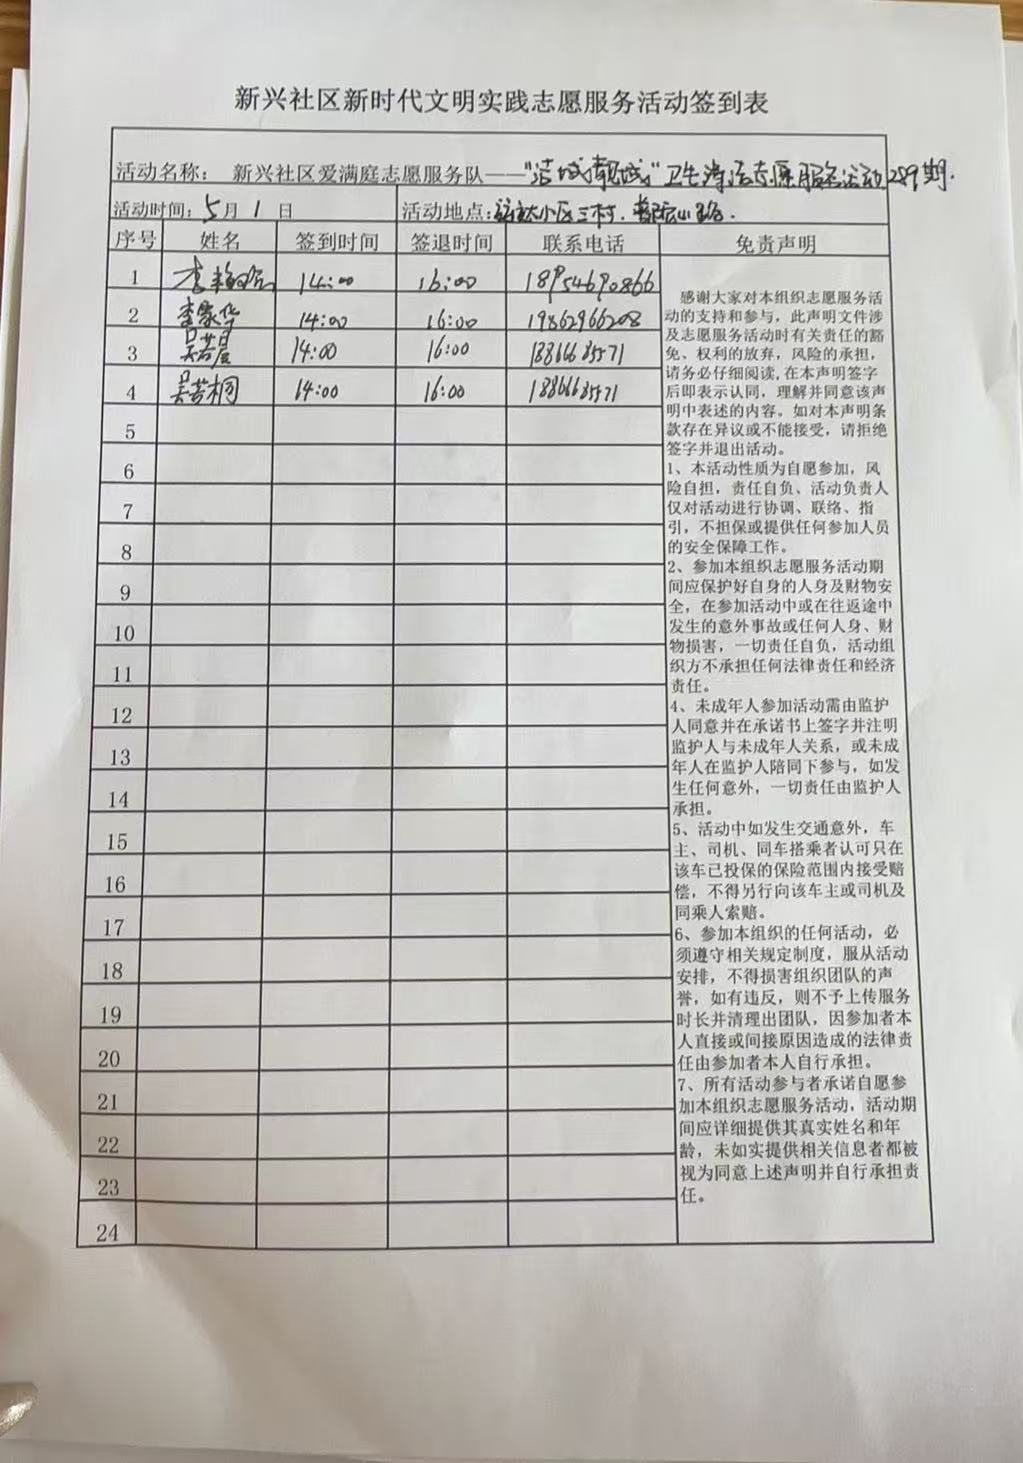 新兴社区新时代文明实践志愿服务活动签到表
活动名称: 新兴社区爱满庭志愿服务队——"洁城靓城"卫生清洁志愿服务活动289期.
活动时间: 5月1日 活动地点: 小区三村.
序号 姓名 签到时间 签退时间 联系电话 免责声明
1 李 14:00 16:00 18954690866
2 李家华 14:00 16:00 19862966208
3 吴若晨 14:00 16:00 18866685571
4 吴若桐 14:00 16:00 18866685571
5
6
7
8
9
10
11
12
13
14
15
16
17
18
19
20
21
22
23
24
感谢大家对本组织志愿服务活
动的支持和参与，此声明文件涉
及志愿服务活动时有关责任的豁
免、权利的放弃，风险的承担，
请务必仔细阅读,在本声明签字
后即表示认同，理解并同意该声
明中表述的内容。如对本声明条
款存在异议或不能接受，请拒绝
签字并退出活动。
1、本活动性质为自愿参加，风
险自担，责任自负、活动负责人
仅对活动进行协调、联络、指
引，不担保或提供任何参加人员
的安全保障工作。
2、参加本组织志愿服务活动期
间应保护好自身的人身及财物安
全，在参加活动中或在往返途中
发生的意外事故或任何人身、财
物损害，一切责任自负，活动组
织方不承担任何法律责任和经济
责任。
4、未成年人参加活动需由监护
人同意并在承诺书上签字并注明
监护人与未成年人关系，或未成
年人在监护人陪同下参与，如发
生任何意外，一切责任由监护人
承担。
5、活动中如发生交通意外，车
主、司机、同车搭乘者认可只在
该车已投保的保险范围内接受赔
偿，不得另行向该车主或司机及
同乘人索赔。
6、参加本组织的任何活动，必
须遵守相关规定制度，服从活动
安排，不得损害组织团队的声
誉，如有违反，则不予上传服务
时长并清理出团队，因参加者本
人直接或间接原因造成的法律责
任由参加者本人自行承担。
7、所有活动参与者承诺自愿参
加本组织志愿服务活动，活动期
间应详细提供其真实姓名和年
龄，未如实提供相关信息者都被
视为同意上述声明并自行承担责
任。